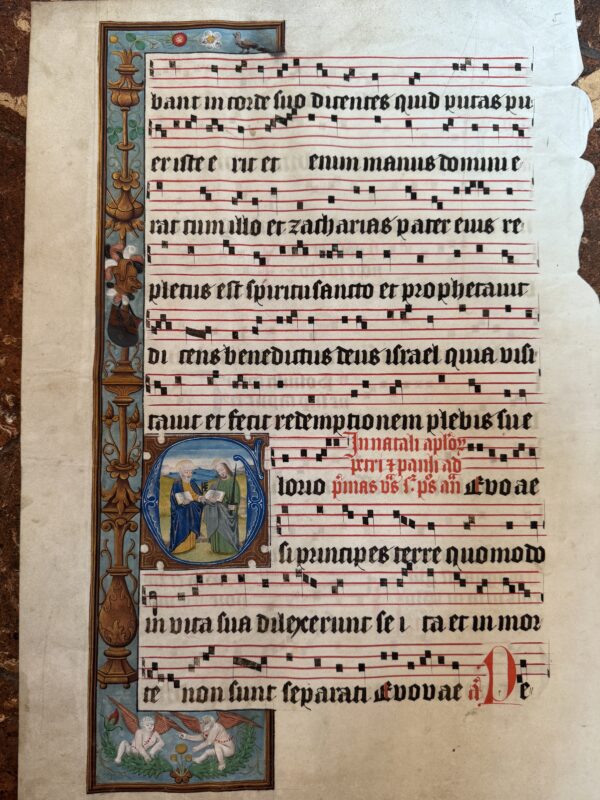 5
vant in corde suo dicentes quid putas pu
er iste e rit et enim manus domini e
rat cum illo et zacharias pater eius re
pletus est spiritu sancto et prophetauit
di cens benedictus deus israel quia visi
tauit et fecit redemptionem plebis sue
In natali aploꝝ
petri ⁊ pauli ad
G lorio pͥmas vs̄ sr̄ ps̄ an̄ Evo ae
si principes terre quomodo
in vita sua dilexerunt se i ta et in mor
te non sunt separati Evovae a͂ P e